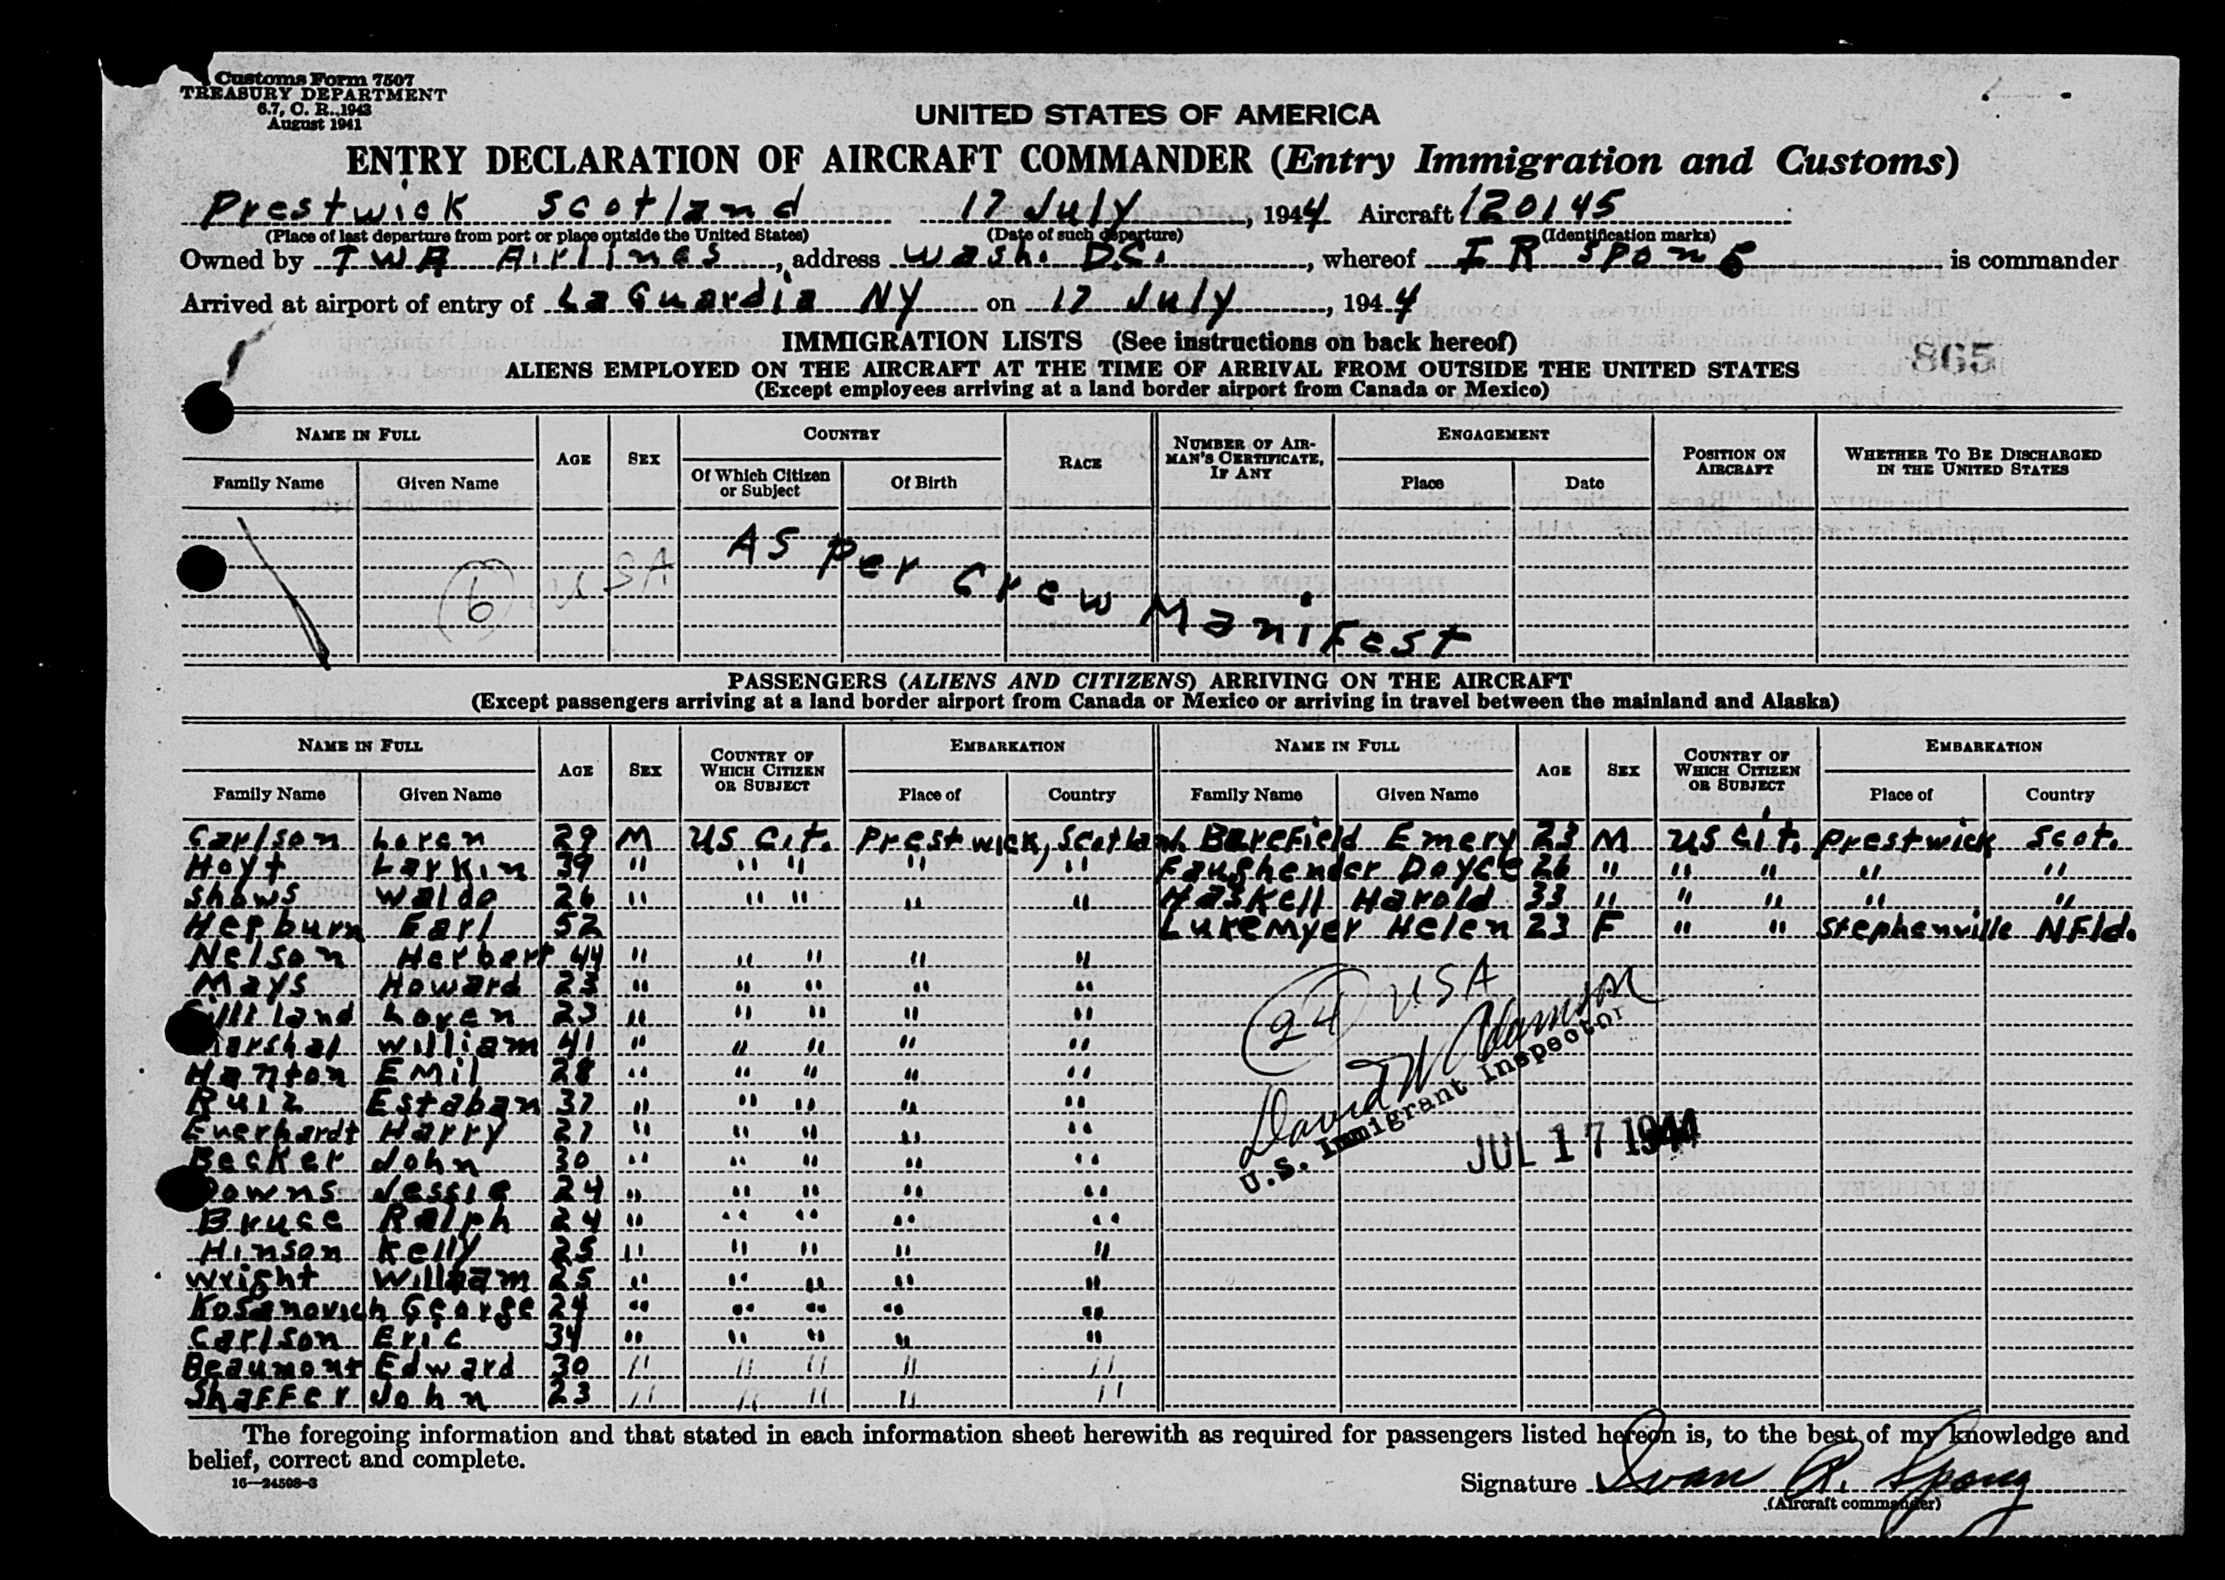 Customs Form 7507
TREASURY DEPARTMENT
6.7, C. R., 1943
August 1941
UNITED STATES OF AMERICA
ENTRY DECLARATION OF AIRCRAFT COMMANDER (Entry Immigration and Customs)
Prestwick Scotland 17 July, 1944 Aircraft 120145
(Place of last departure from port or place outside the United States) (Date of such departure) (Identification marks)
Owned by TWA Airlines, address Wash. D.C., whereof I R Spong is commander
Arrived at airport of entry of La Guardia NY on 17 July, 1944
IMMIGRATION LISTS (See instructions on back hereof)
865
ALIENS EMPLOYED ON THE AIRCRAFT AT THE TIME OF ARRIVAL FROM OUTSIDE THE UNITED STATES
(Except employees arriving at a land border airport from Canada or Mexico)
NAME IN FULL AGE SEX COUNTRY RACE NUMBER OF AIRMAN'S CERTIFICATE, IF ANY ENGAGEMENT POSITION ON AIRCRAFT WHETHER TO BE DISCHARGED IN THE UNITED STATES
Family Name Given Name Of Which Citizen or Subject Of Birth Place Date
As per Crew Manifest
6 USA
PASSENGERS (ALIENS AND CITIZENS) ARRIVING ON THE AIRCRAFT
(Except passengers arriving at a land border airport from Canada or Mexico or arriving in travel between the mainland and Alaska)
NAME IN FULL AGE SEX COUNTRY OF WHICH CITIZEN OR SUBJECT EMBARKATION NAME IN FULL AGE SEX COUNTRY OF WHICH CITIZEN OR SUBJECT EMBARKATION
Family Name Given Name Place of Country Family Name Given Name Place of Country
Carlson Loren 29 M US Cit. Prestwick, Scotland. Barefield Emery 23 M US Cit. Prestwick Scot.
Hoyt Larkin 39 " " " " " Faughender Doyce 26 " " " " "
Shows Waldo 26 " " " " " Haskell Harold 33 " " " " "
Hepburn Earl 52 Lukemyer Helen 23 F " " Stephenville NFld.
Nelson Herbert 44 " " " " "
Mays Howard 23 " " " " "
Gilliland Loren 23 " " " " "
Marshal William 41 " " " " "
Hanton Emil 28 " " " " "
Ruiz Estaban 37 " " " " "
Everhardt Harry 27 " " " " "
Becker John 30 " " " " "
Downs Jessie 24 " " " " "
Bruce Ralph 24 " " " " "
Hinson Kelly 25 " " " " "
Wright William 25 " " " " "
Kosanovich George 24 " " " " "
Carlson Eric 34 " " " " "
Beaumont Edward 30 " " " " "
Shaffer John 23 " " " " "
24 USA
David W Adamson
U.S. Immigrant Inspector
JUL 17 1944
The foregoing information and that stated in each information sheet herewith as required for passengers listed hereon is, to the best of my knowledge and
belief, correct and complete.
16—24598-3
Signature Ivan R. Spong
(Aircraft commander)